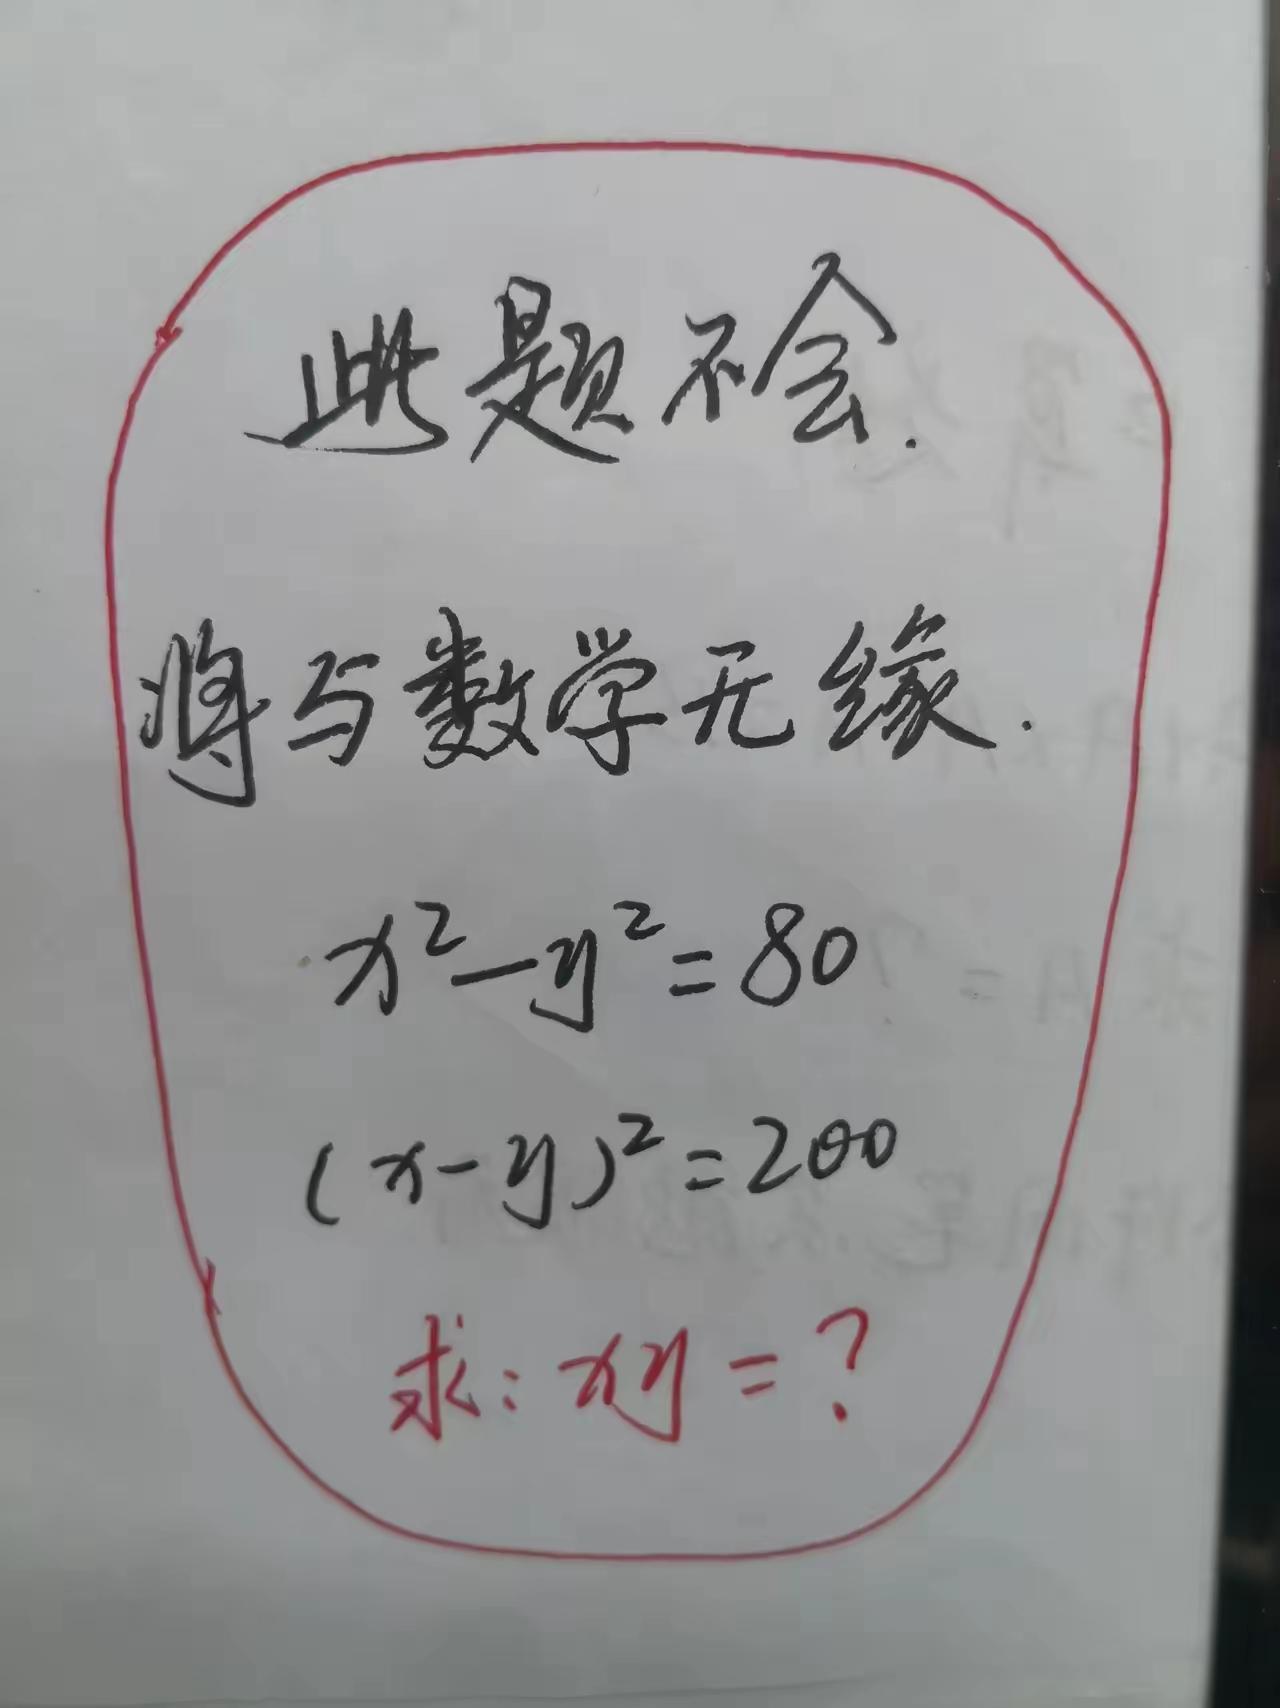 此题不会.
将与数学无缘.
x²-y²=80
(x-y)²=200
求:xy=?